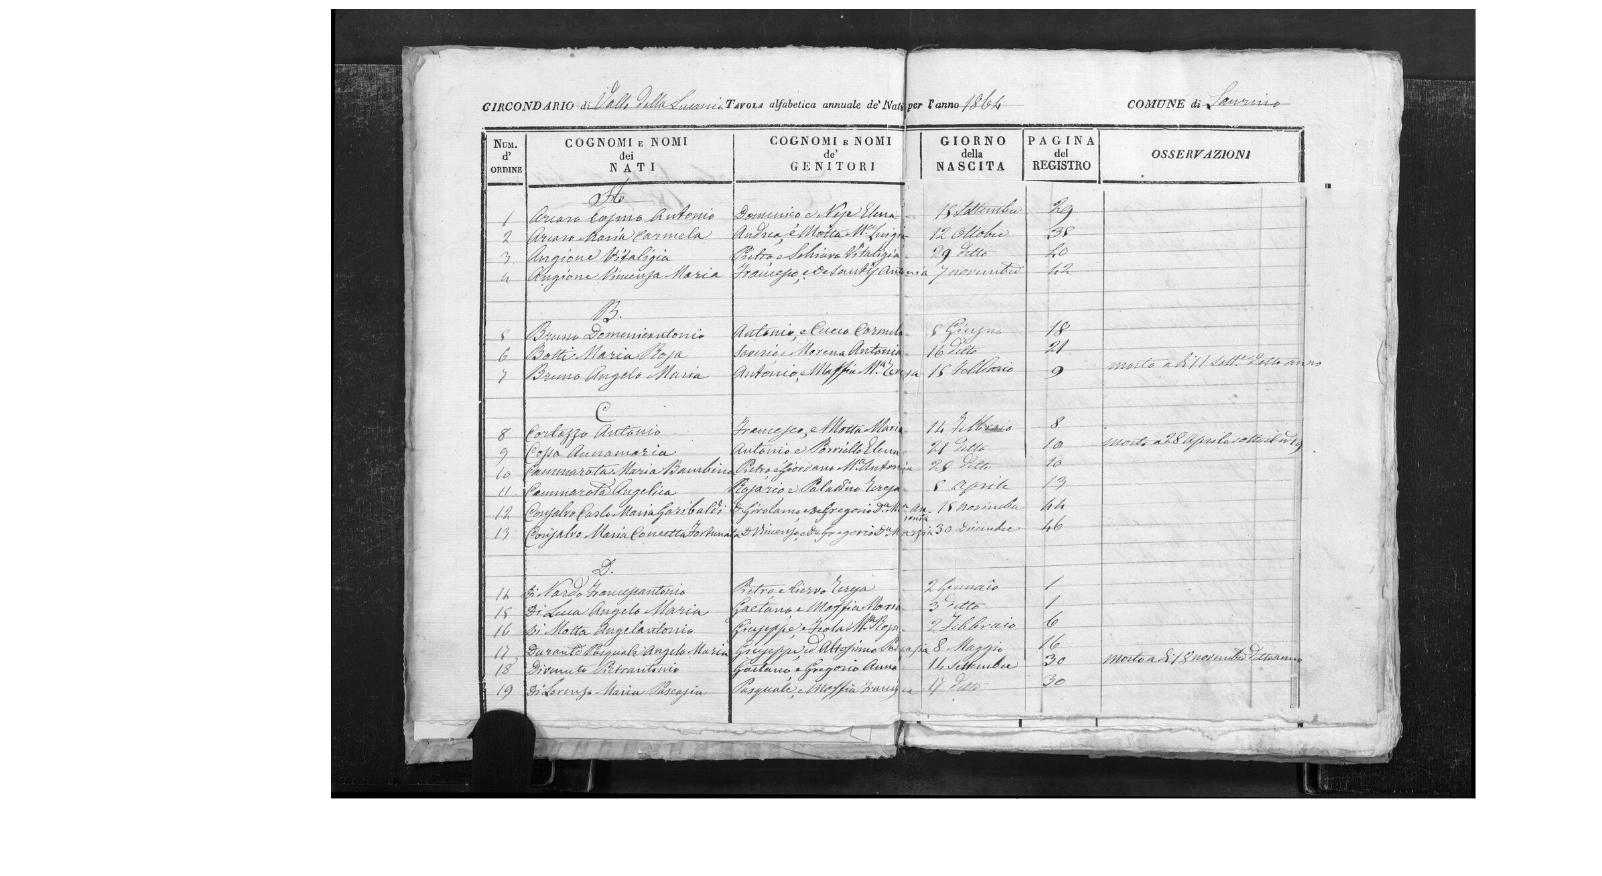 CIRCONDARIO di Valle della Lucania TAVOLA alfabetica annuale de' Nati per l'anno 1864 COMUNE di Laurino
NUM. d' ORDINE COGNOMI E NOMI dei NATI COGNOMI E NOMI de' GENITORI GIORNO della NASCITA PAGINA del REGISTRO OSSERVAZIONI
A
1 Cosmo Antonio Domenico e Elena 18 Settembre 29
2 Maria Carmela Andrea, e Motta Mª Luigia 12 Ottobre 38
3 Angione Vitaligia Pietro e Schiavo Vitaligia 29 detto 40
4 Angione Vincenza Maria Francesco, e De Santis Antonia 7 novembre 42
B.
5 Bruno Domenicantonio Antonio, e Cucco Carmela 5 Giugno 18
6 Botti Maria Rosa Saverio e Morena Antonia 16 detto 21
7 Bruno Angelo Maria Antonio, e Maffia Mª Teresa 18 Febbraio 9 morto a dì 11 Sett.e detto anno
C
8 Cortazzo Antonio Francesco, e Motta Maria 14 Febbraio 8
9 Annamaria Antonio e Elena 21 detto 10 morta a 28 Aprile
10 Cammarota Maria Bambina Pietro e Giordano Mª Antonia 28 detto 10
11 Cammarota Angelica Rosario e Paladino Teresa 5 Aprile 13
12 Consalvo Carlo Maria Garibaldi D. Girolamo, e de Gregorio D.a Mª Antonia 18 novembre 44
13 Consalvo Maria Concetta Fortunata D. Vincenzo, e De Gregorio D.a 30 Dicembre 46
D.
14 di Nardo Francescantonio Pietro e Cervo Teresa 2 Gennaio 1
15 Di Luca Angelo Maria Gaetano e Maffia Maria 3 detto 1
16 Di Motta Angelantonio Giuseppe, e Mª Rosa 2 Febbraio 6
17 Durante Pasquale Angelo Maria Giuseppe, ed Altopinno 8 Maggio 16
18 Divenuto Pietrantonio Gaetano, e Gregorio Anna 14 Settembre 30 morto a dì 18 novembre detto anno
19 Di Lorenzo Maria Pascasia Pasquale, e Maffia 17 detto 30